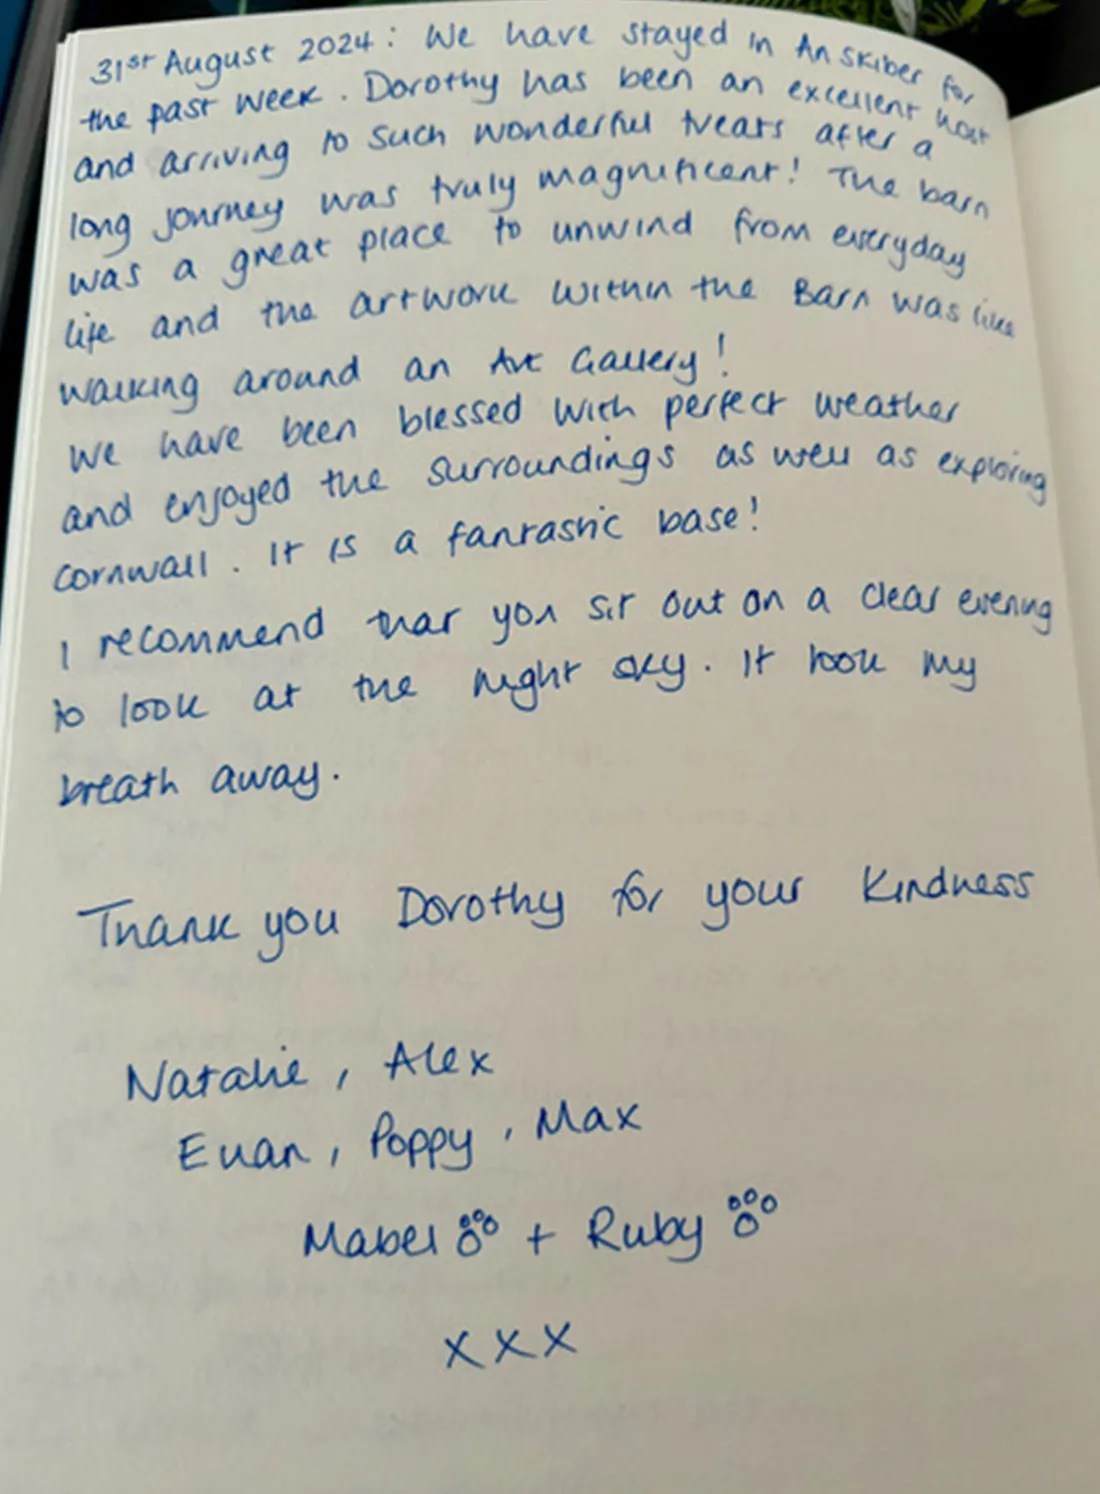 31st August 2024: We have stayed in An Skiber for
the past week. Dorothy has been an excellent host
and arriving to such wonderful treats after a
long journey was truly magnificent! The barn
was a great place to unwind from everyday
life and the artwork within the Barn was like
walking around an Art Gallery!
We have been blessed with perfect weather
and enjoyed the surroundings as well as exploring
Cornwall. It is a fantastic base!
I recommend that you sit out on a clear evening
to look at the night sky. It took my
breath away.
Thank you Dorothy for your kindness
Natalie, Alex
Euan, Poppy, Max
Mabel + Ruby
xxx